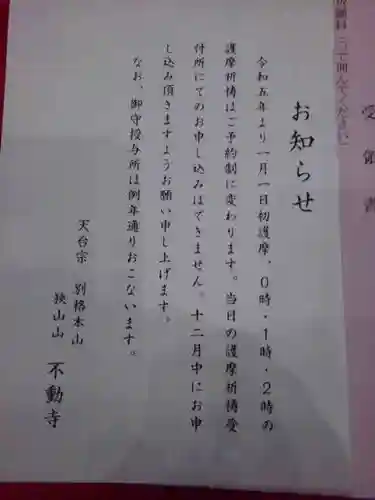 祈願料(○で囲んでください)
受領書
お知らせ
令和五年より一月一日初護摩、0時・1時・2時の
護摩祈祷はご予約制に変わります。当日の護摩祈祷受
付所にてのお申し込みはできません。十二月中にお申
し込み頂きますようお願い申し上げます。
なお、御守授与所は例年通りおこないます。
天台宗 別格本山
狭山山 不動寺